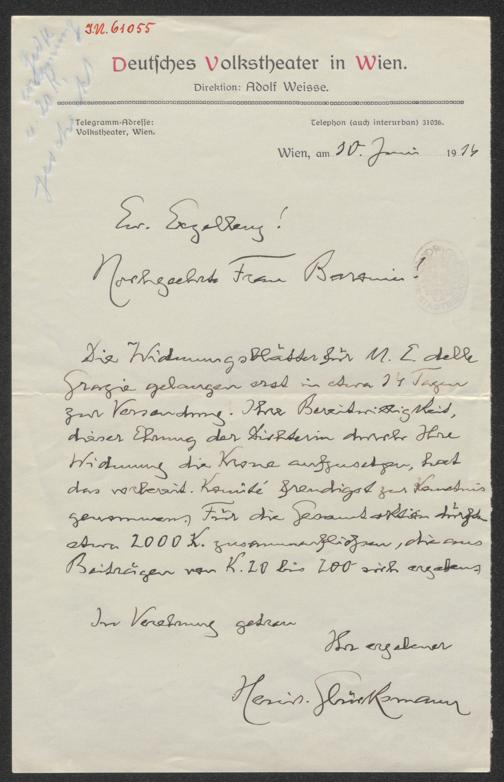 I.N. 61055
Deutsches Volkstheater in Wien.
Direktion: Adolf Weisse.
Telegramm-Adresse:
Volkstheater, Wien.
Telephon (auch interurban) 31036.
Wien, am 10. Juni 1914
Ew. Exzellenz!
Hochgeehrte Frau Baronin!
Die Widmungsblätter für M. E. delle
Grazie gelangen erst in etwa 14 Tagen
zur Versendung. Ihre Bereitwilligkeit,
dieser Ehrung der Dichterin durch Ihre
Widmung die Krone aufzusetzen, hat
das vorbereit. Komité freudigst zur Kenntnis
genommen. Für die Gesamtaktion dürften
etwa 2000 K. zusammenfließen, die aus
Beiträgen von K. 20 bis 200 sich ergeben.
In Verehrung getreu
Ihr ergebener
Heinr. Glücksmann